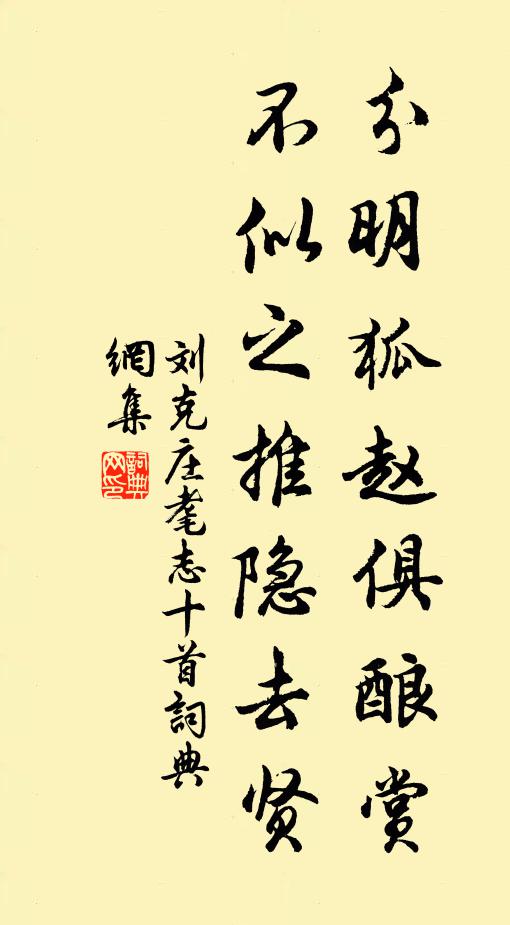 分明狐赵俱酿赏
不似之推隐去贤
刘克庄耄志十首詞典
網集
詞典
网印